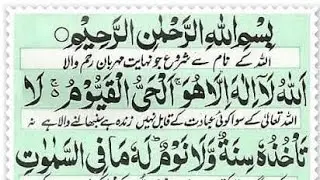 بِسْمِ اللهِ الرَّحْمٰنِ الرَّحِيْمِ ○
اللہ کے نام سے شروع جو نہایت مہربان رحم والا
اَللهُ لَآ اِلٰهَ اِلَّا هُوَ ۚ اَلْحَيُّ الْقَيُّوْمُ ۚ لَا
اللہ تعالیٰ کے سوا کوئی عبادت کے قابل نہیں زندہ ہے سنبھالنے والا ہے نہ
تَاْخُذُهٗ سِنَةٌ وَّلَا نَوْمٌ ؕ لَهٗ مَا فِي السَّمٰوٰتِ